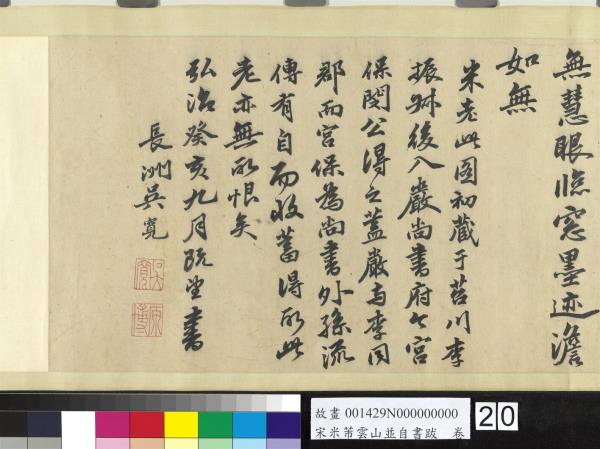 無慧眼臨窓墨迹澹
如無
米老此图初藏于苕川李
振叔後入嚴尚書府今宮
保閔公得之蓋嚴与李同
郡而宮保為尚書外孫流
傳有自而收蓄得所此
老亦無所恨矣
弘治癸亥九月既望書
長洲吴寛
吴寛
原博
故畫 001429N000000000
宋米芾雲山並自書跋 卷
20